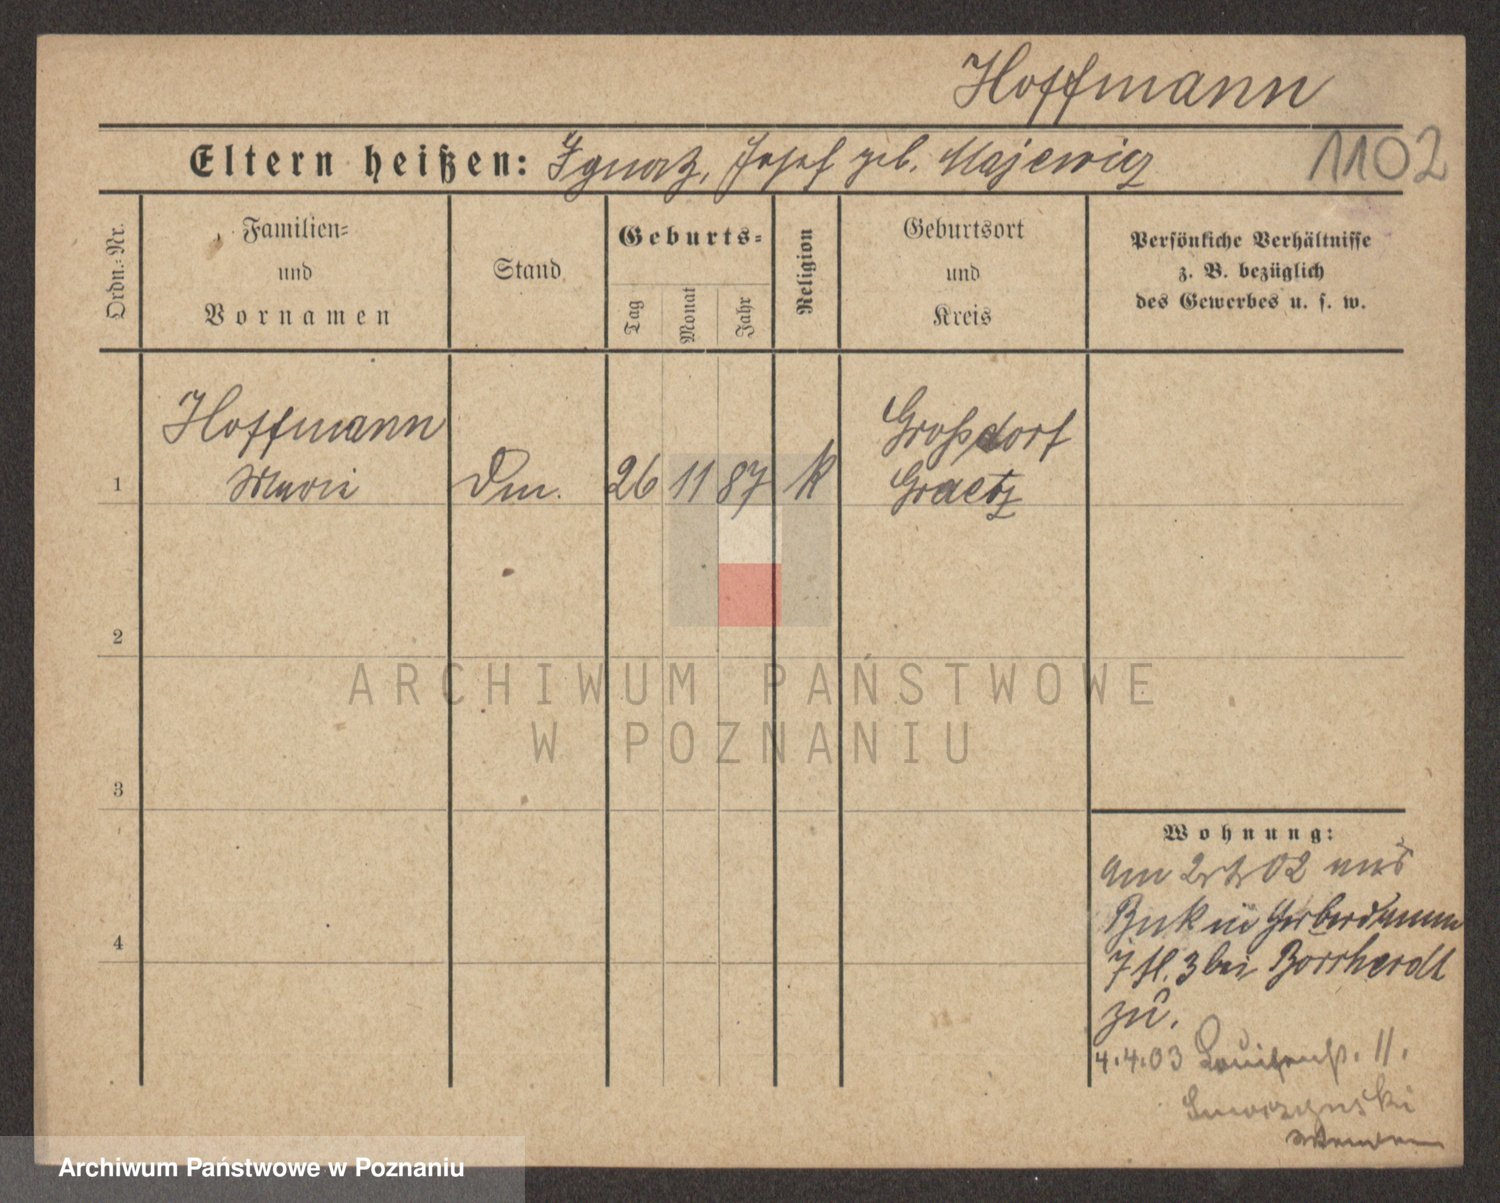 Hoffmann
1102
Eltern heißen: Ignatz, Josef geb. Majewicz
Ordn.-Nr.
Familien-
und
Vornamen
Stand
Geburts-
Tag
Monat
Jahr
Religion
Geburtsort
und
Kreis
Persönliche Verhältnisse
z. B. bezüglich
des Gewerbes u. s. w.
1
Hoffmann
Marie
26 11 87
k
Großdorf
Graetz
2
3
4
Wohnung:
am 02 aus
Buk in Gerberdamm
7 3 bei Borrhardt
zu.
4.4.03 Louisenst. 11.
ARCHIWUM PAŃSTWOWE
W POZNANIU
Archiwum Państwowe w Poznaniu